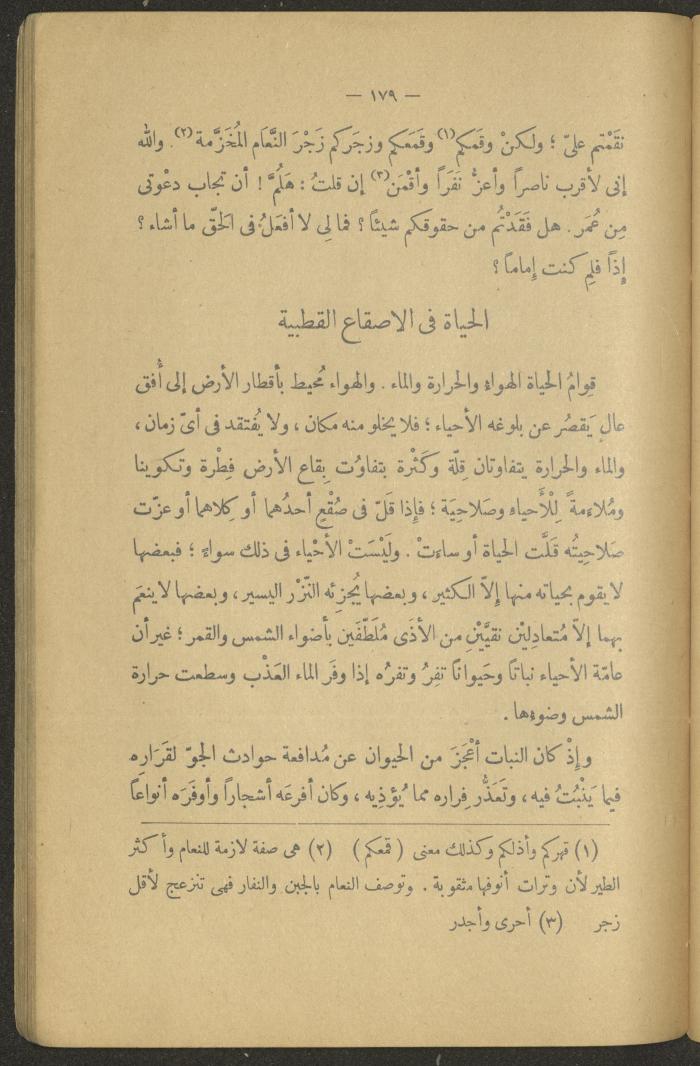 — ١٧٩ —
نقَمْتم علىّ ؛ ولكنْ وقَمكم(١) وقَمَعكم وزجَركم زَجْرَ النَّعَام المُخَزَّمة(٢). والله
إنى لأقرب ناصراً وأعزُّ نَفَرَاً وأقْمَن(٣) إن قلتُ : هَلُمَّ ! أن تجاب دعْوتى
مِن عُمَر . هل فَقَدْتُم من حقوقكم شيئاً ؟ فما لِى لا أفعَلُ فى الحَقّ ما أشاء ؟
إذاً فلِم كنت إماماً ؟
الحياة فى الاصقاع القطبية
قِوامُ الحياة الهواء والحرارة والماء . والهواء مُحيط بأقطار الأرض إلى أُفق
عالٍ يَقصُر عن بلوغه الأحياء ؛ فلا يخلو منه مكان ، ولا يُفتقد فى أىّ زمان ،
والماء والحرارة يتفاوتان قِلّة وكَثْرة بتفاوُت بِقاع الأرض فِطْرة وتكوينا
ومُلاءمةً لِلْأَحياء وصَلاحِيَة ؛ فإذا قَلّ فى صُقْعٍ أحدُهما أو كِلاهما أو عزّت
صَلاحِيتُه قَلَّت الحياة أو ساءتْ . ولَيْسَتْ الأحْياء فى ذلك سواءً ؛ فبعضها
لا يقوم بحياته منها إلاّ الكثير ، وبعضها يُجزئه النَّزْر اليسير ، وبعضها لا ينعَم
بهما إلاّ مُتعادِليْن نقيَّيْنِ من الأذَى مُلَطَّفَين بأضواء الشمس والقمر ؛ غير أن
عامّة الأحياء نباتاً وحَيواناً تفِرُ وتفرُه إذا وفَر الماء العَذْب وسطعت حرارة
الشمس وضوءها .
وإذْ كان النبات أعْجَزَ من الحيوان عن مُدافعة حوادث الجوّ لقَرَاره
فيما يَنْبُتُ فيه ، وتَعَذُّر فِراره مما يُؤذِيه ، وكان أفرعَه أشجاراً وأوفَرَه أنواعَاً
(١) قهركم وأذلكم وكذلك معنى ( قمعكم ) (٢) هى صفة لازمة للنعام وأكثر
الطير لأن وترات أنوفها مثقوبة . وتوصف النعام بالجبن والنفار فهى تنزعج لأقل
زجر (٣) أحرى وأجدر